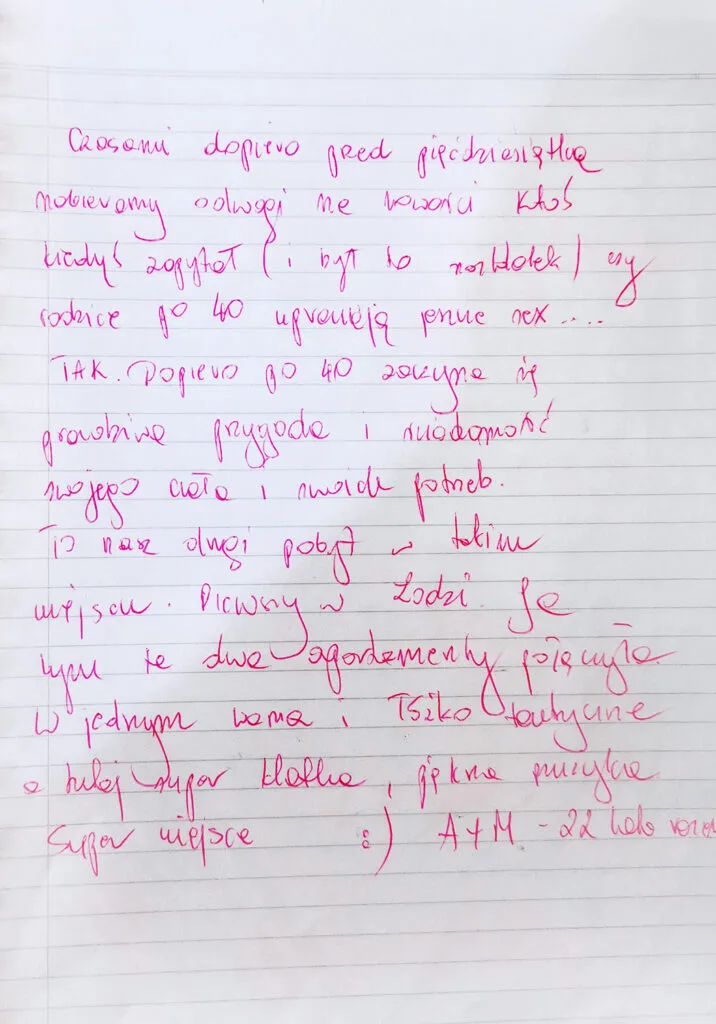 Czasami dopiero przed pięćdziesiątką
nabieramy odwagi na nowości Ktoś
kiedyś zapytał (i był to nastolatek) czy
rodzice po 40 uprawiają jeszcze sex....
TAK. Dopiero po 40 zaczyna się
prawdziwa przygoda i świadomość
swojego ciała i swoich potrzeb.
To nasz drugi pobyt w takim
miejscu. Pierwszy w Łodzi. Ja
bym te dwa apartamenty połączyła
W jednym wanna i łóżko
a tutaj super klatka, piękna muzyka
Super miejsce :) A+M - 22 lata razem